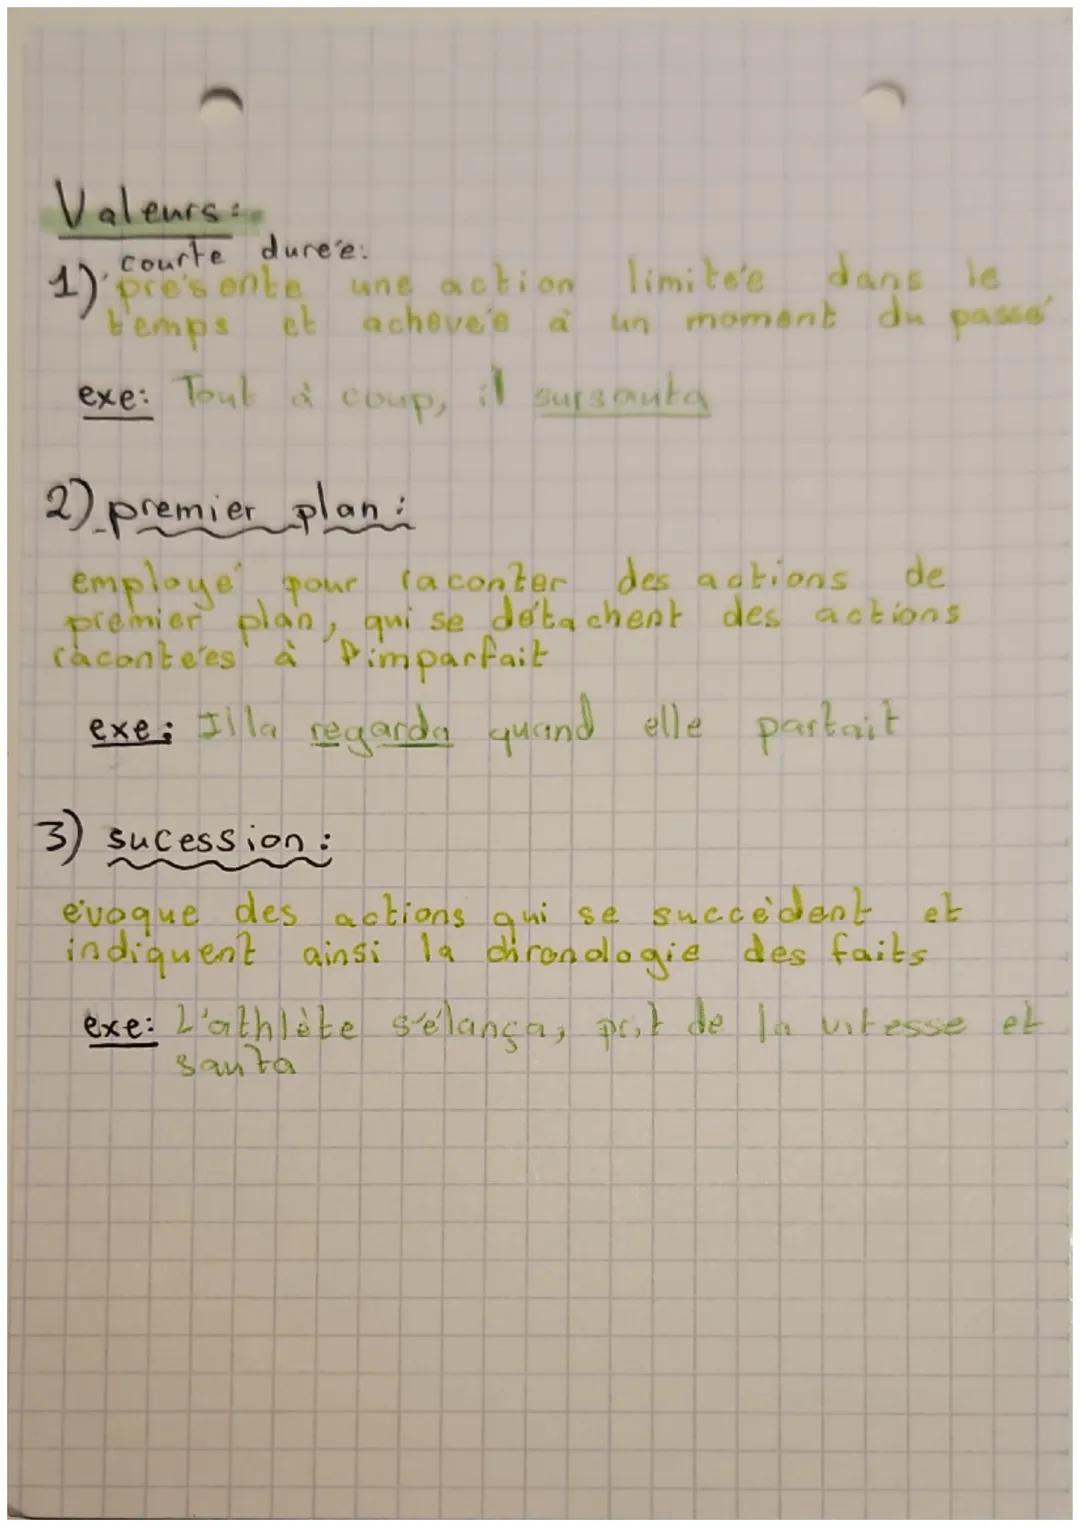 Valeurs:
courte durée:
1) présente une action limitée dans le
temps et achevée à un moment du passé
exe: Tout à coup, il sursauta
2) premier plan :
employé pour raconter des actions de
premier plan, qui se détachent des actions
racontées à l'imparfait
exe: Il la regarda quand elle partait
3) sucession :
évoque des actions qui se succèdent et
indiquent ainsi la chronologie des faits
exe: L'athlète s'élança, prit de la vitesse et
sauta